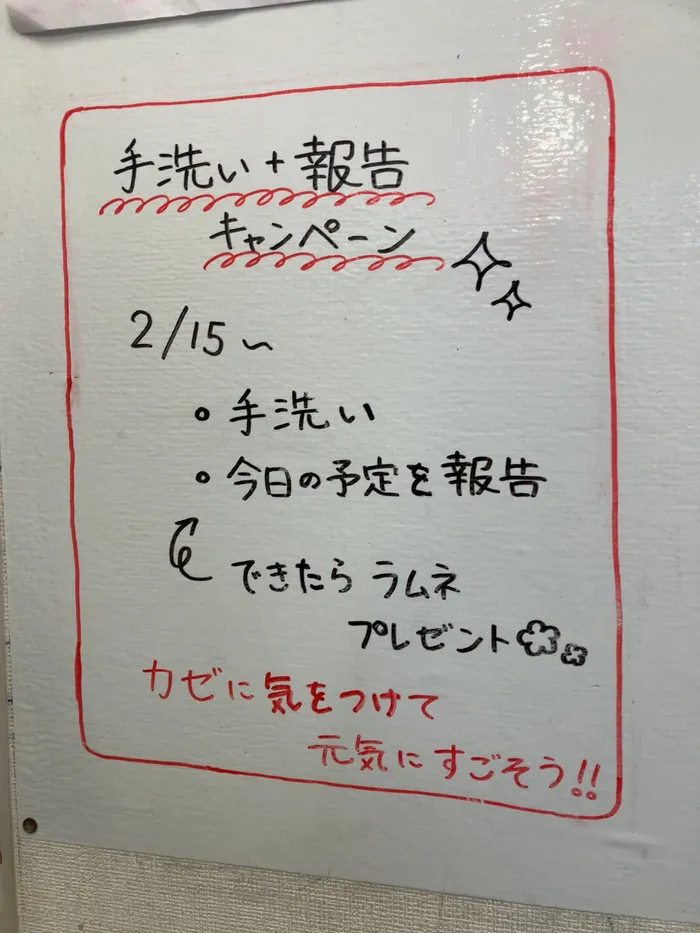 手洗い+報告
キャンペーン
2/15~
・手洗い
・今日の予定を報告
できたら ラムネ
プレゼント
カゼに気をつけて
元気にすごそう!!